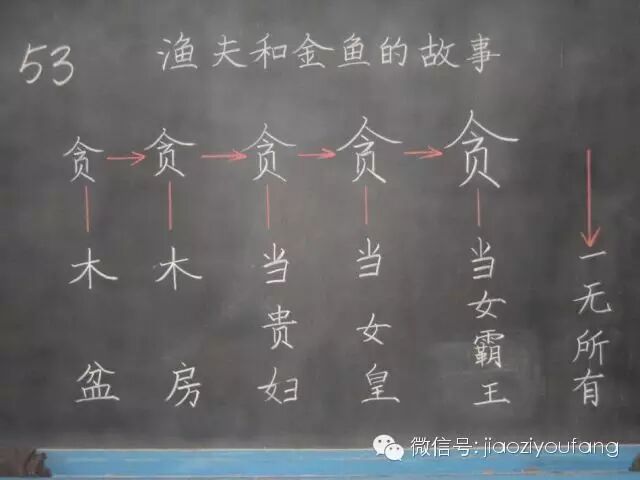 53 渔夫和金鱼的故事
贪 贪 贪 贪 贪
木盆
木房
当贵妇
当女皇
当女霸王
一无所有
微信号: jiaoziyoufang